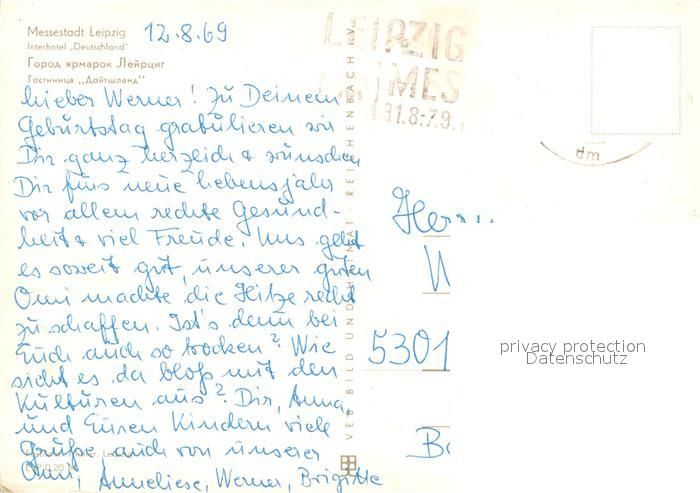 Messestadt Leipzig
Interhotel „Deutschland"
Город ярмарок Лейпциг
Гостиница „Дойтшланд"
12.8.69
Lieber Werner! Zu Deinem
Geburtstag gratulieren wir
Dir ganz herzlich & wünschen
Dir fürs neue Lebensjahr
vor allem rechte Gesund-
heit & viel Freude. Uns geht
es soweit gut, unserer guten
Omi machte die Hitze recht
zu schaffen. Ist's denn bei
Euch auch so trocken? Wie
sieht es da bloß mit den
Kulturen aus? Dir, Anna
und Euren Kindern viele
Grüße auch von unserer
Omi, Anneliese, Werner, Brigitte
VEB BILD UND HEIMAT REICHENBACH
LEIPZIG
MES
31.8-7.9.
dm
Herrn
W
5301
Bo
privacy protection
Datenschutz